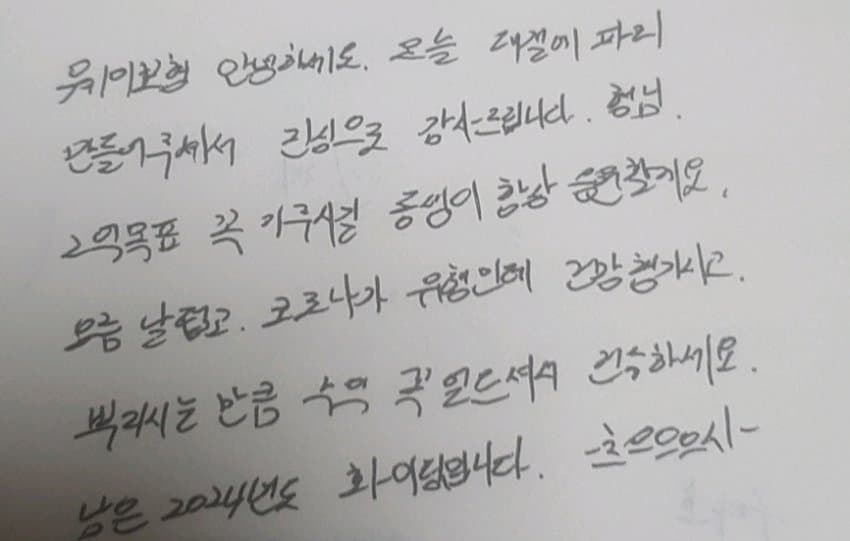 우키이브형 안녕하세요. 오늘 대결에 파리
만들어주셔서 진심으로 감사드립니다. 형님.
2억목표 꼭 이루시길 롱벵이 항상 응원할게요.
요즘 날덥고. 코로나가 유행인데 건강챙기시고.
뿌리시는 만큼 수억 꼭 얻으셔서 한수하세요.
남은 2024년도 화이팅입니다. -흐으으으시-